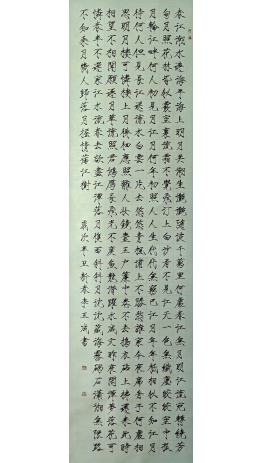 春江潮水連海平海上明月共潮生灩灩隨波千萬里何處春江無月明江流宛轉繞芳
甸月照花林皆似霰空裏流霜不覺飛汀上白沙看不見江天一色無纖塵皎皎空中孤
月輪江畔何人初見月江月何年初照人人生代代無窮已江月年年祇相似不知江月
待何人但見長江送流水白雲一片去悠悠青楓浦上不勝愁誰家今夜扁舟子何處相
思明月樓可憐樓上月徘徊應照離人妝鏡臺玉戶簾中卷不去擣衣砧上拂還來此時
相望不相聞願逐月華流照君鴻雁長飛光不度魚龍潛躍水成文昨夜閑潭夢落花可
憐春半不還家江水流春去欲盡江潭落月復西斜斜月沉沉藏海霧碣石瀟湘無限路
不知乘月幾人歸落月搖情滿江樹 歲次辛丑新春 王斌書